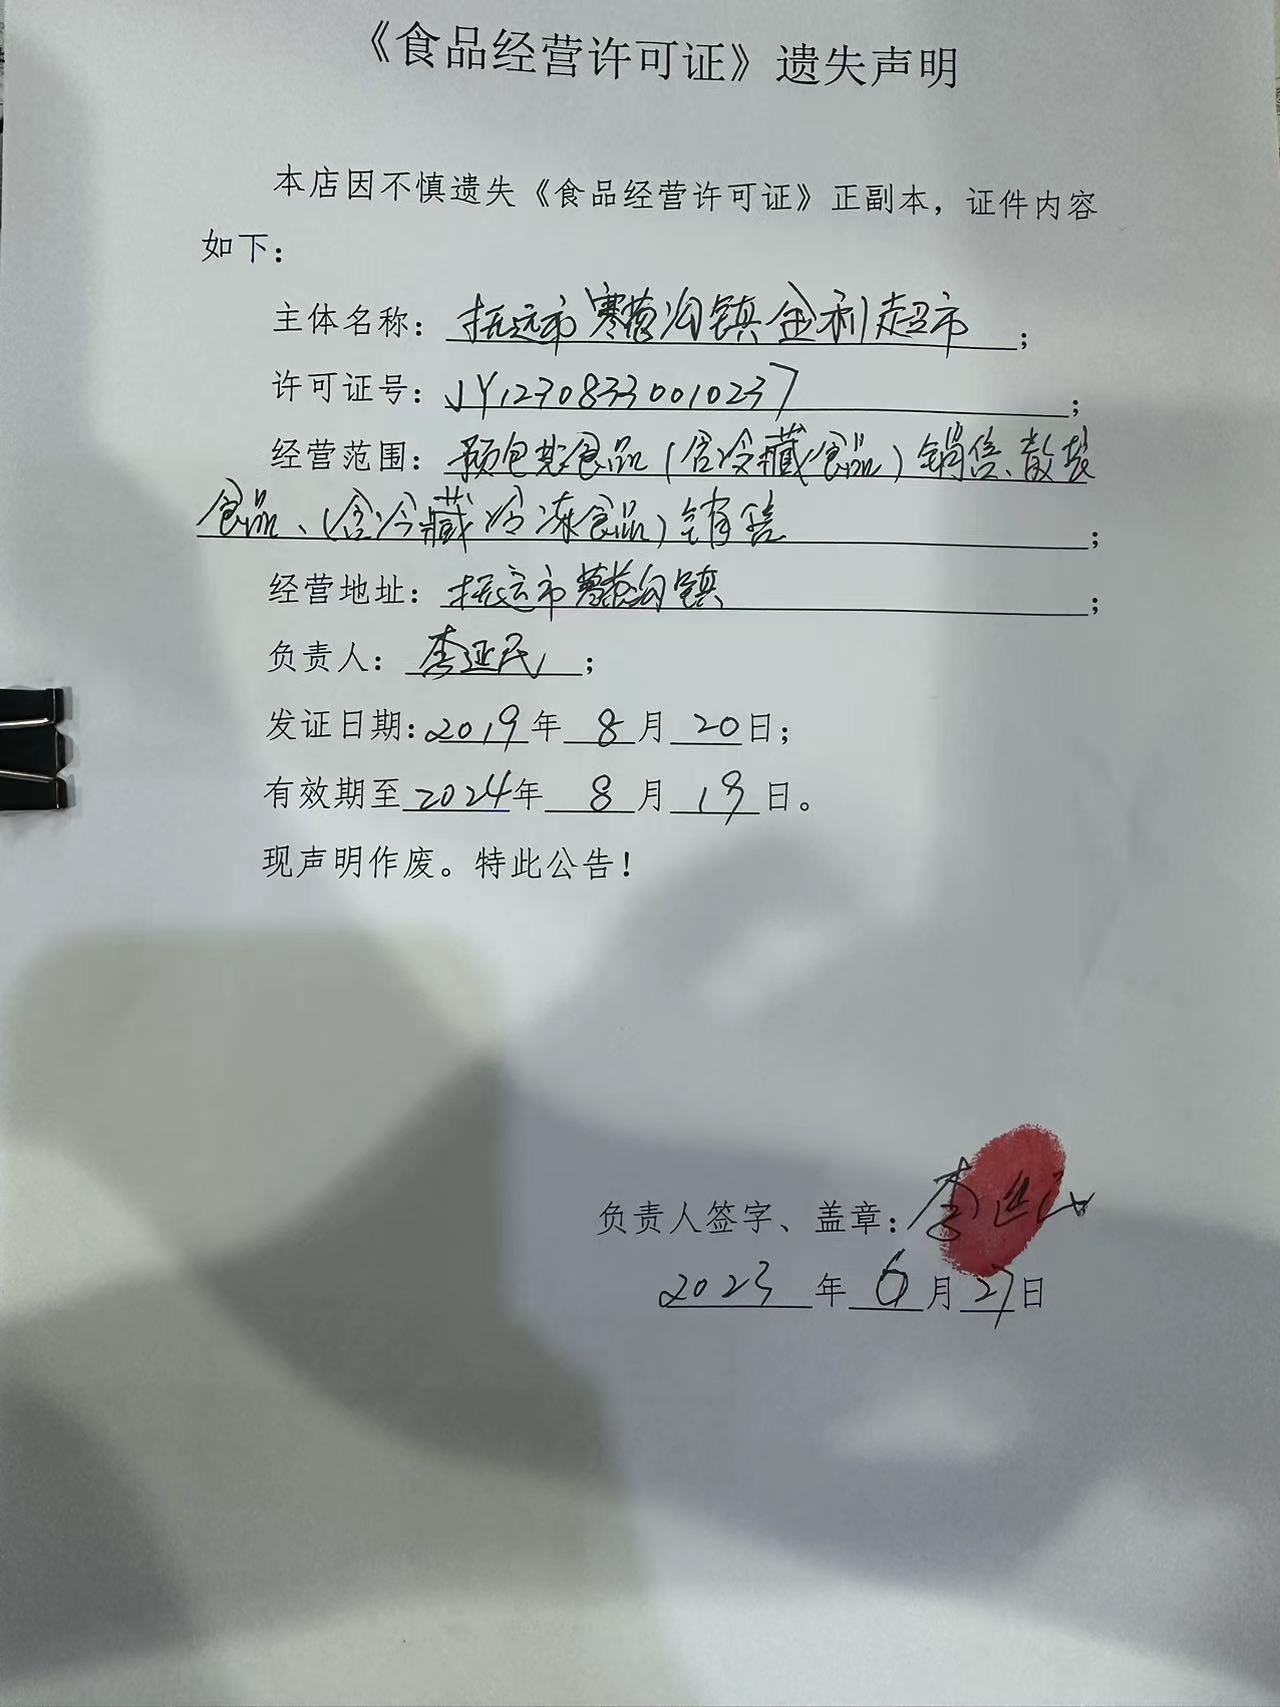 《食品经营许可证》遗失声明
本店因不慎遗失《食品经营许可证》正副本，证件内容
如下：
主体名称：抚远市寒葱沟镇金利超市；
许可证号：JY12308330010237；
经营范围：预包装食品（含冷藏食品）销售、散装
食品、（含冷藏冷冻食品）销售；
经营地址：抚远市寒葱沟镇；
负责人：李延民；
发证日期：2019年8月20日；
有效期至2024年8月19日。
现声明作废。特此公告！
负责人签字、盖章：李延民
2023年6月27日